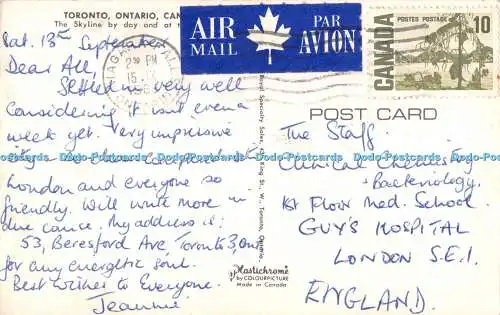 TORONTO, ONTARIO, CAN
The Skyline by day and at
Sat. 13th September
Dear All,
Settled in very well
Considering it isnt even a
week yet. Very impressive
city - clean compared to
London and everyone so
friendly. Will write more in
due course. My address is:
53, Beresford Ave Toronto 3, Ont
for any energetic soul.
Best wishes to Everyone.
Jeannie
AIR MAIL
PAR AVION
CANADA
POSTES POSTAGE
10
NIAGARA FALL
PM
15
POST CARD
The Staff,
Clinical Chemistry
Bacteriology.
1st Floor Med. School.
GUY'S HOSPITAL
LONDON S.E.1.
ENGLAND.
Royal Specialty Sales, 43 King St., W., Toronto, Ontario.
Plastichrome
by COLOURPICTURE
Made in Canada
Dodo-Postcards Dodo-Postcards Dodo-Postcards Dodo-Postcards Dodo-Postcards